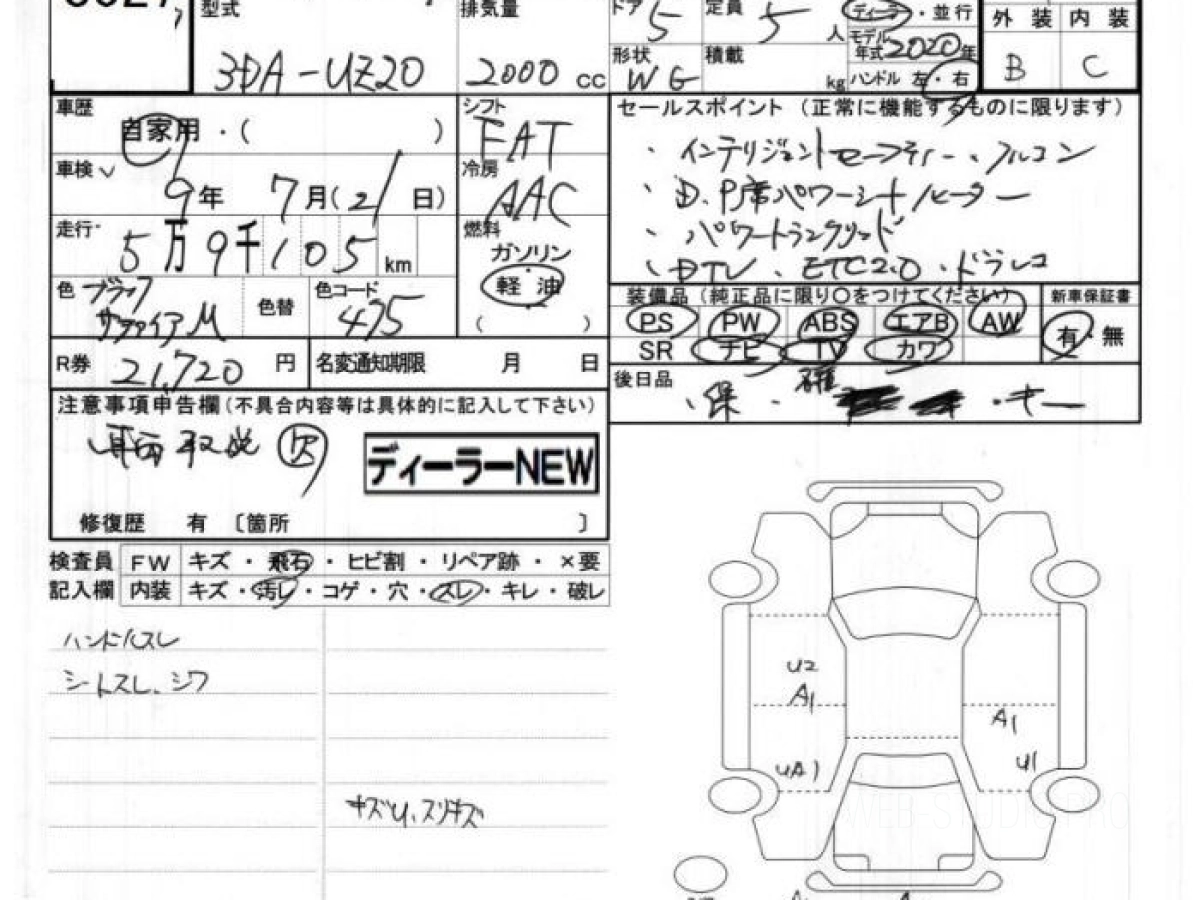 型式 排気量 ドア 5 定員 5 人 ディーラ・並行 外装 内装
3DA-UZ20 2000 cc 形状 WG 積載 kg モデル年式 2020年 B C
ハンドル 左・右
車歴 自家用・( ) シフト FAT セールスポイント (正常に機能するものに限ります)
・インテリジェントセーフティー、フルコン
車検 9年 7月(21日) 冷房 AAC ・D.P席パワーシート/ヒーター
・パワートランクリッド
走行 5万9千105km 燃料 ガソリン 軽油 ( ) ・DTV・ETC2.0・ドラレコ
色 ブラックサファイアM 色替 色コード 475 装備品 (純正品に限り○をつけてください) 新車保証書
PS PW ABS エアB AW 有・無
SR ナビ TV カワ
R券 21,720 円 名変通知期限 月 日 後日品
・保・ ・キー
注意事項申告欄(不具合内容等は具体的に記入して下さい)
取説 欠 ディーラーNEW
修復歴 有 〔箇所 〕
検査員 FW キズ・飛石・ヒビ割・リペア跡・×要
記入欄 内装 キズ・汚レ・コゲ・穴・スレ・キレ・破レ
ハンドルスレ
シートスレ、シワ
U2
A1 A1
UA1 U1
キズU、スリキズ
WEB-STUDIO.PRO